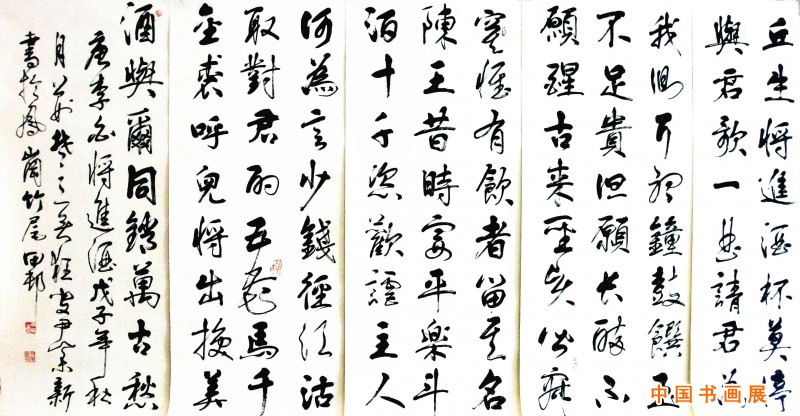 丘生將進酒杯莫停
與君歌一曲請君為
我側耳聽鐘鼓饌玉
不足貴但願長醉不
願醒古來聖賢皆寂
寞惟有飲者留其名
陳王昔時宴平樂斗
酒十千恣歡謔主人
何為言少錢徑須沽
取對君酌五花馬千
金裘呼兒將出換美
酒與爾同銷萬古愁
唐李白將進酒戊子年秋
月 狂叟尹 新
書於鳳崗竹尾田邨
中国书画展